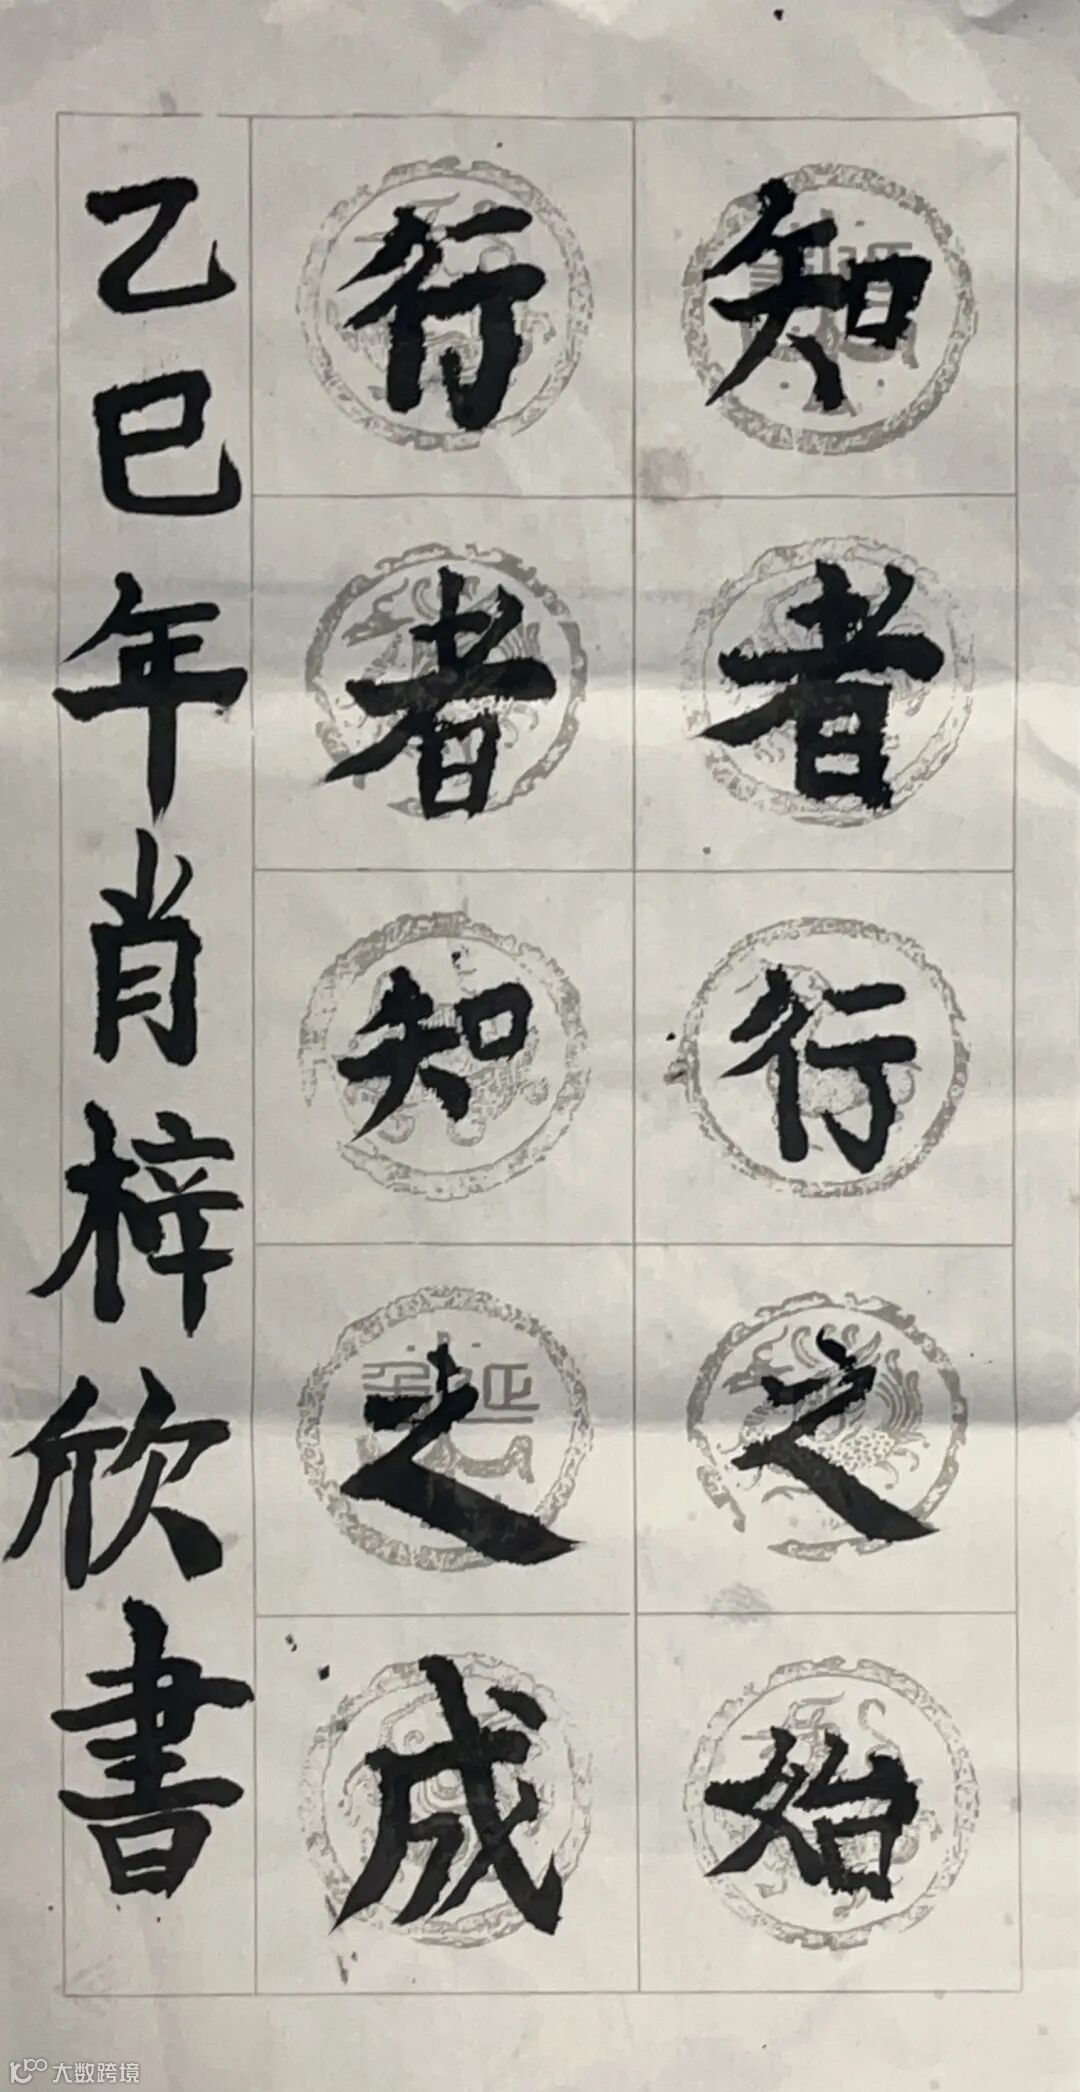 知者行之始
行者知之成
乙巳年肖梓欣書
大数跨境